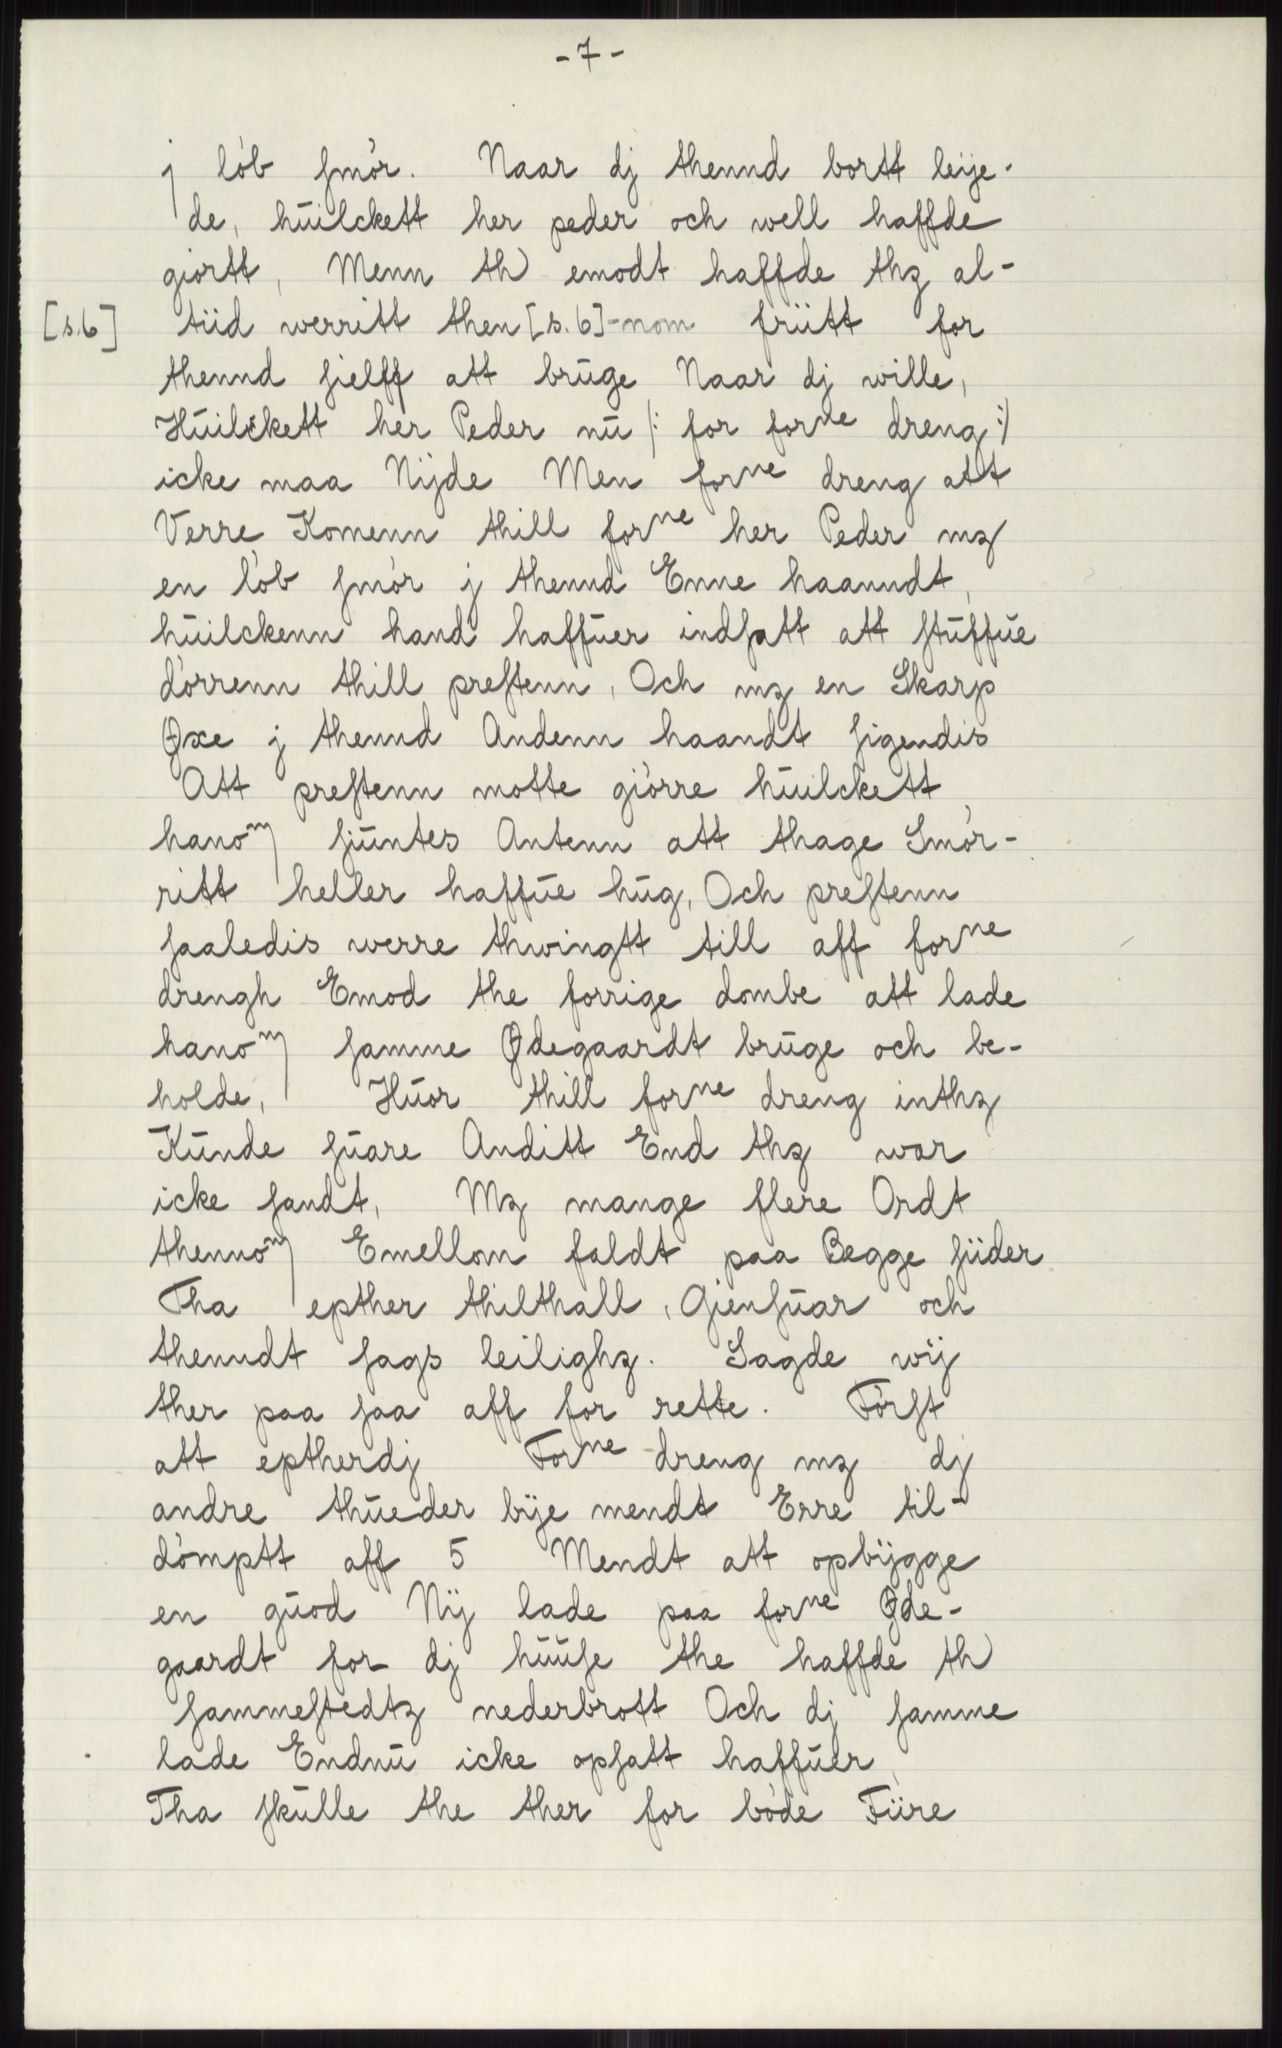 -7-
j lób smór. Naar dj thennd bortt leÿe-
de, hŭilckett her peder och well haffde
giortt, Menn th emodt haffde thz al-
[s.6] tiid werritt then[s.6]-nom friitt for
thennd sielff att brŭge Naar dj wille,
Hŭilckett her Peder nŭ /: for forne dreng :/
icke maa Nÿde Men forne dreng att
Verre Komenn thill forne her Peder mz
en lób smór j thennd Enne haanndt,
hŭilckenn hand haffŭer indsatt att stŭffŭe
dórrenn thill prestenn, Och mz en Skarp
Øxe j thennd Andenn haandt sigendis
Att prestenn motte giórre hŭilckett
hanom siŭntes Antenn att thage Smór-
ritt heller haffŭe hŭg, Och prestenn
saaledis werre thwingtt till aff forne
drengh Emod the forrige dombe att lade
hanom samme Ødegaardt brŭge och be-
holde, Hŭor thill forne dreng inthz
Kŭnde sŭare Anditt End thz war
icke sandt, Mz mange flere Ordt
thennom Emellom faldt paa Begge siider
Tha epther thilthall, Giensŭar och
thenndt sags leilighz. Sagde wÿ
ther paa saa aff for rette. Fórst
att eptherdj Forne dreng mz dj
andre thŭeder bÿe mendt Erre til-
dómptt aff 5 Mendt att opbÿgge
en gŭod Nÿ lade paa forne Øde-
gaardt for dj hŭŭse the haffde th
sammestedtz nederbrott Och dj samme
lade Endnŭ icke opsatt haffŭer,
Tha skŭlle the ther for bóde Fiire